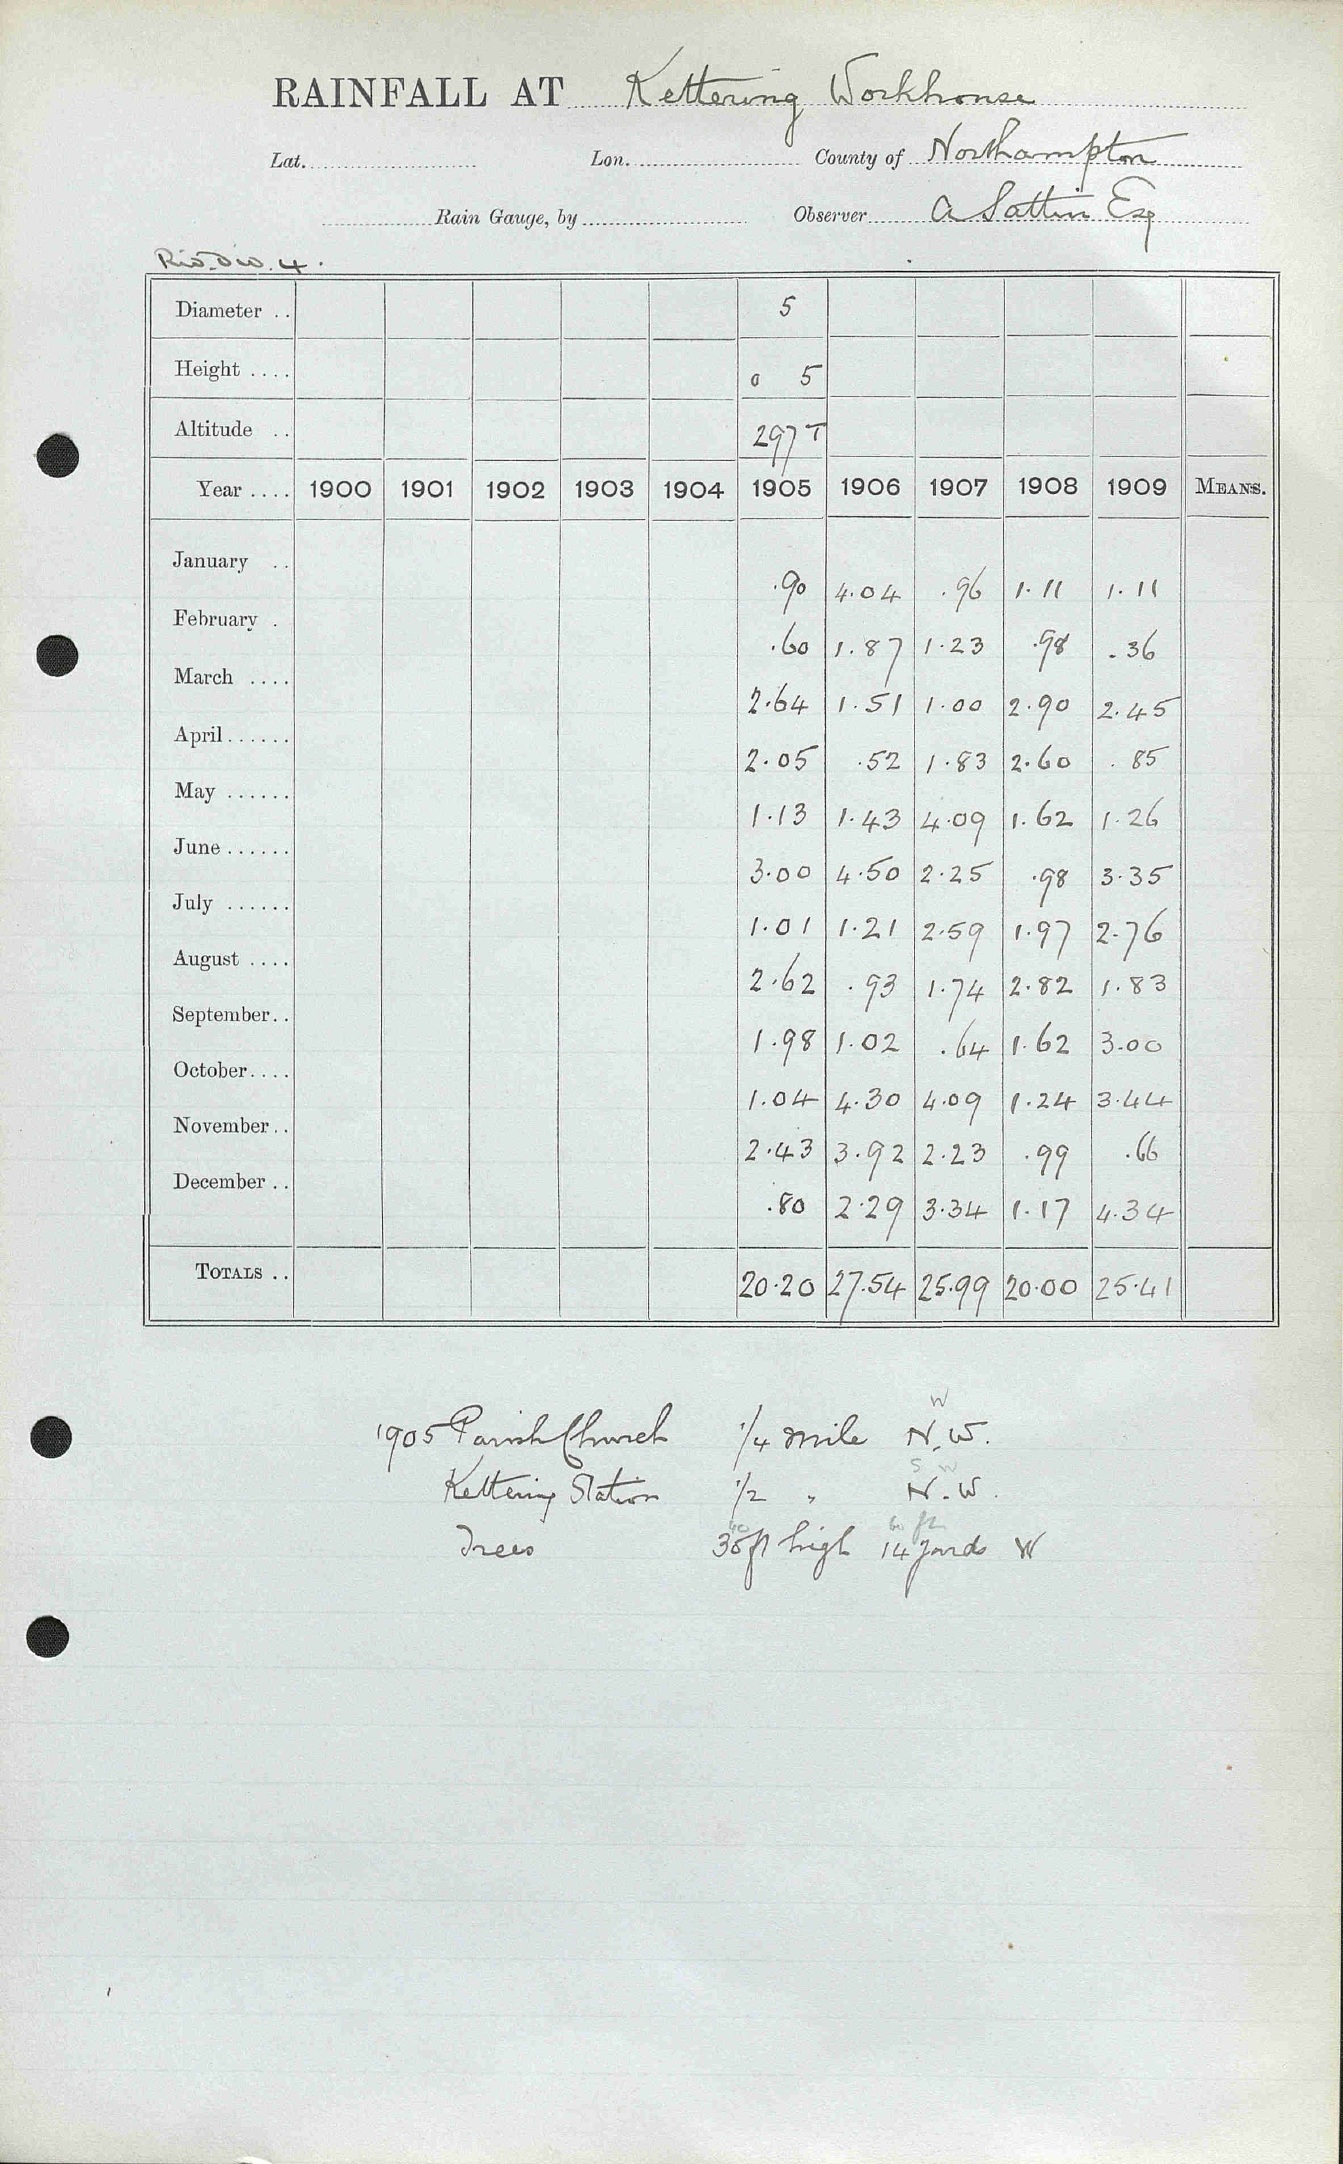 RAINFALL AT Kettering Workhouse
Lat. Lon. County of Northampton
Rain Gauge, by Observer A Sattin Esq
Riv. Div. 4.
Diameter .. 5
Height .... 0 5
Altitude .. 297 T
Year .... 1900 1901 1902 1903 1904 1905 1906 1907 1908 1909 MEANS.
January .. .90 4.04 .96 1.11 1.11
February . .60 1.87 1.23 .98 .36
March .... 2.64 1.51 1.00 2.90 2.45
April ...... 2.05 .52 1.83 2.60 .85
May ...... 1.13 1.43 4.09 1.62 1.26
June ...... 3.00 4.50 2.25 .98 3.35
July ...... 1.01 1.21 2.59 1.97 2.76
August .... 2.62 .93 1.74 2.82 1.83
September .. 1.98 1.02 .64 1.62 3.00
October .... 1.04 4.30 4.09 1.24 3.44
November .. 2.43 3.92 2.23 .99 .66
December .. .80 2.29 3.34 1.17 4.34
TOTALS .. 20.20 27.54 25.99 20.00 25.41
W
1905 Parish Church 1/4 mile N.W.
S W
Kettering Station 1/2 " N.W.
40 60 ft
Trees 30ft high 14 yards W